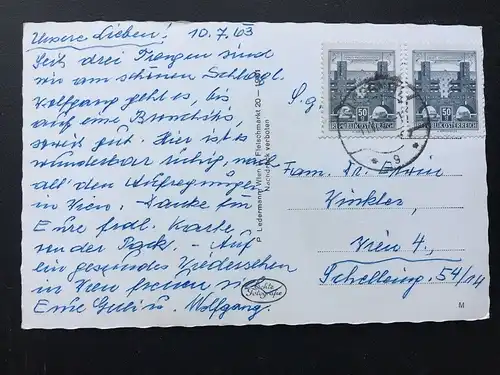 Unsere Lieben! 10.7.63
Seit drei Tagen sind
wir am schönen
Wolfgang geht es, bis
auf eine Bronchitis,
sonst gut. Hier ist es
wunderbar ruhig, nach
all den Aufregungen
in Wien. Danke für
Eure frdl. Karte
von der
Auf
ein gesundes Wiedersehen
in Wien freuen sich
Eure Wolfgang.
P. Ledermann, Wien I, Fleischmarkt 20
Nachdruck verboten
Echte
Fotografie
50 50
REPUBLIK ÖSTERREICH REPUBLIK ÖSTERREICH
S. g.
Fam. Dr. Erwin
Winkler,
Wien 4.,
Schelleing. 54/14
M